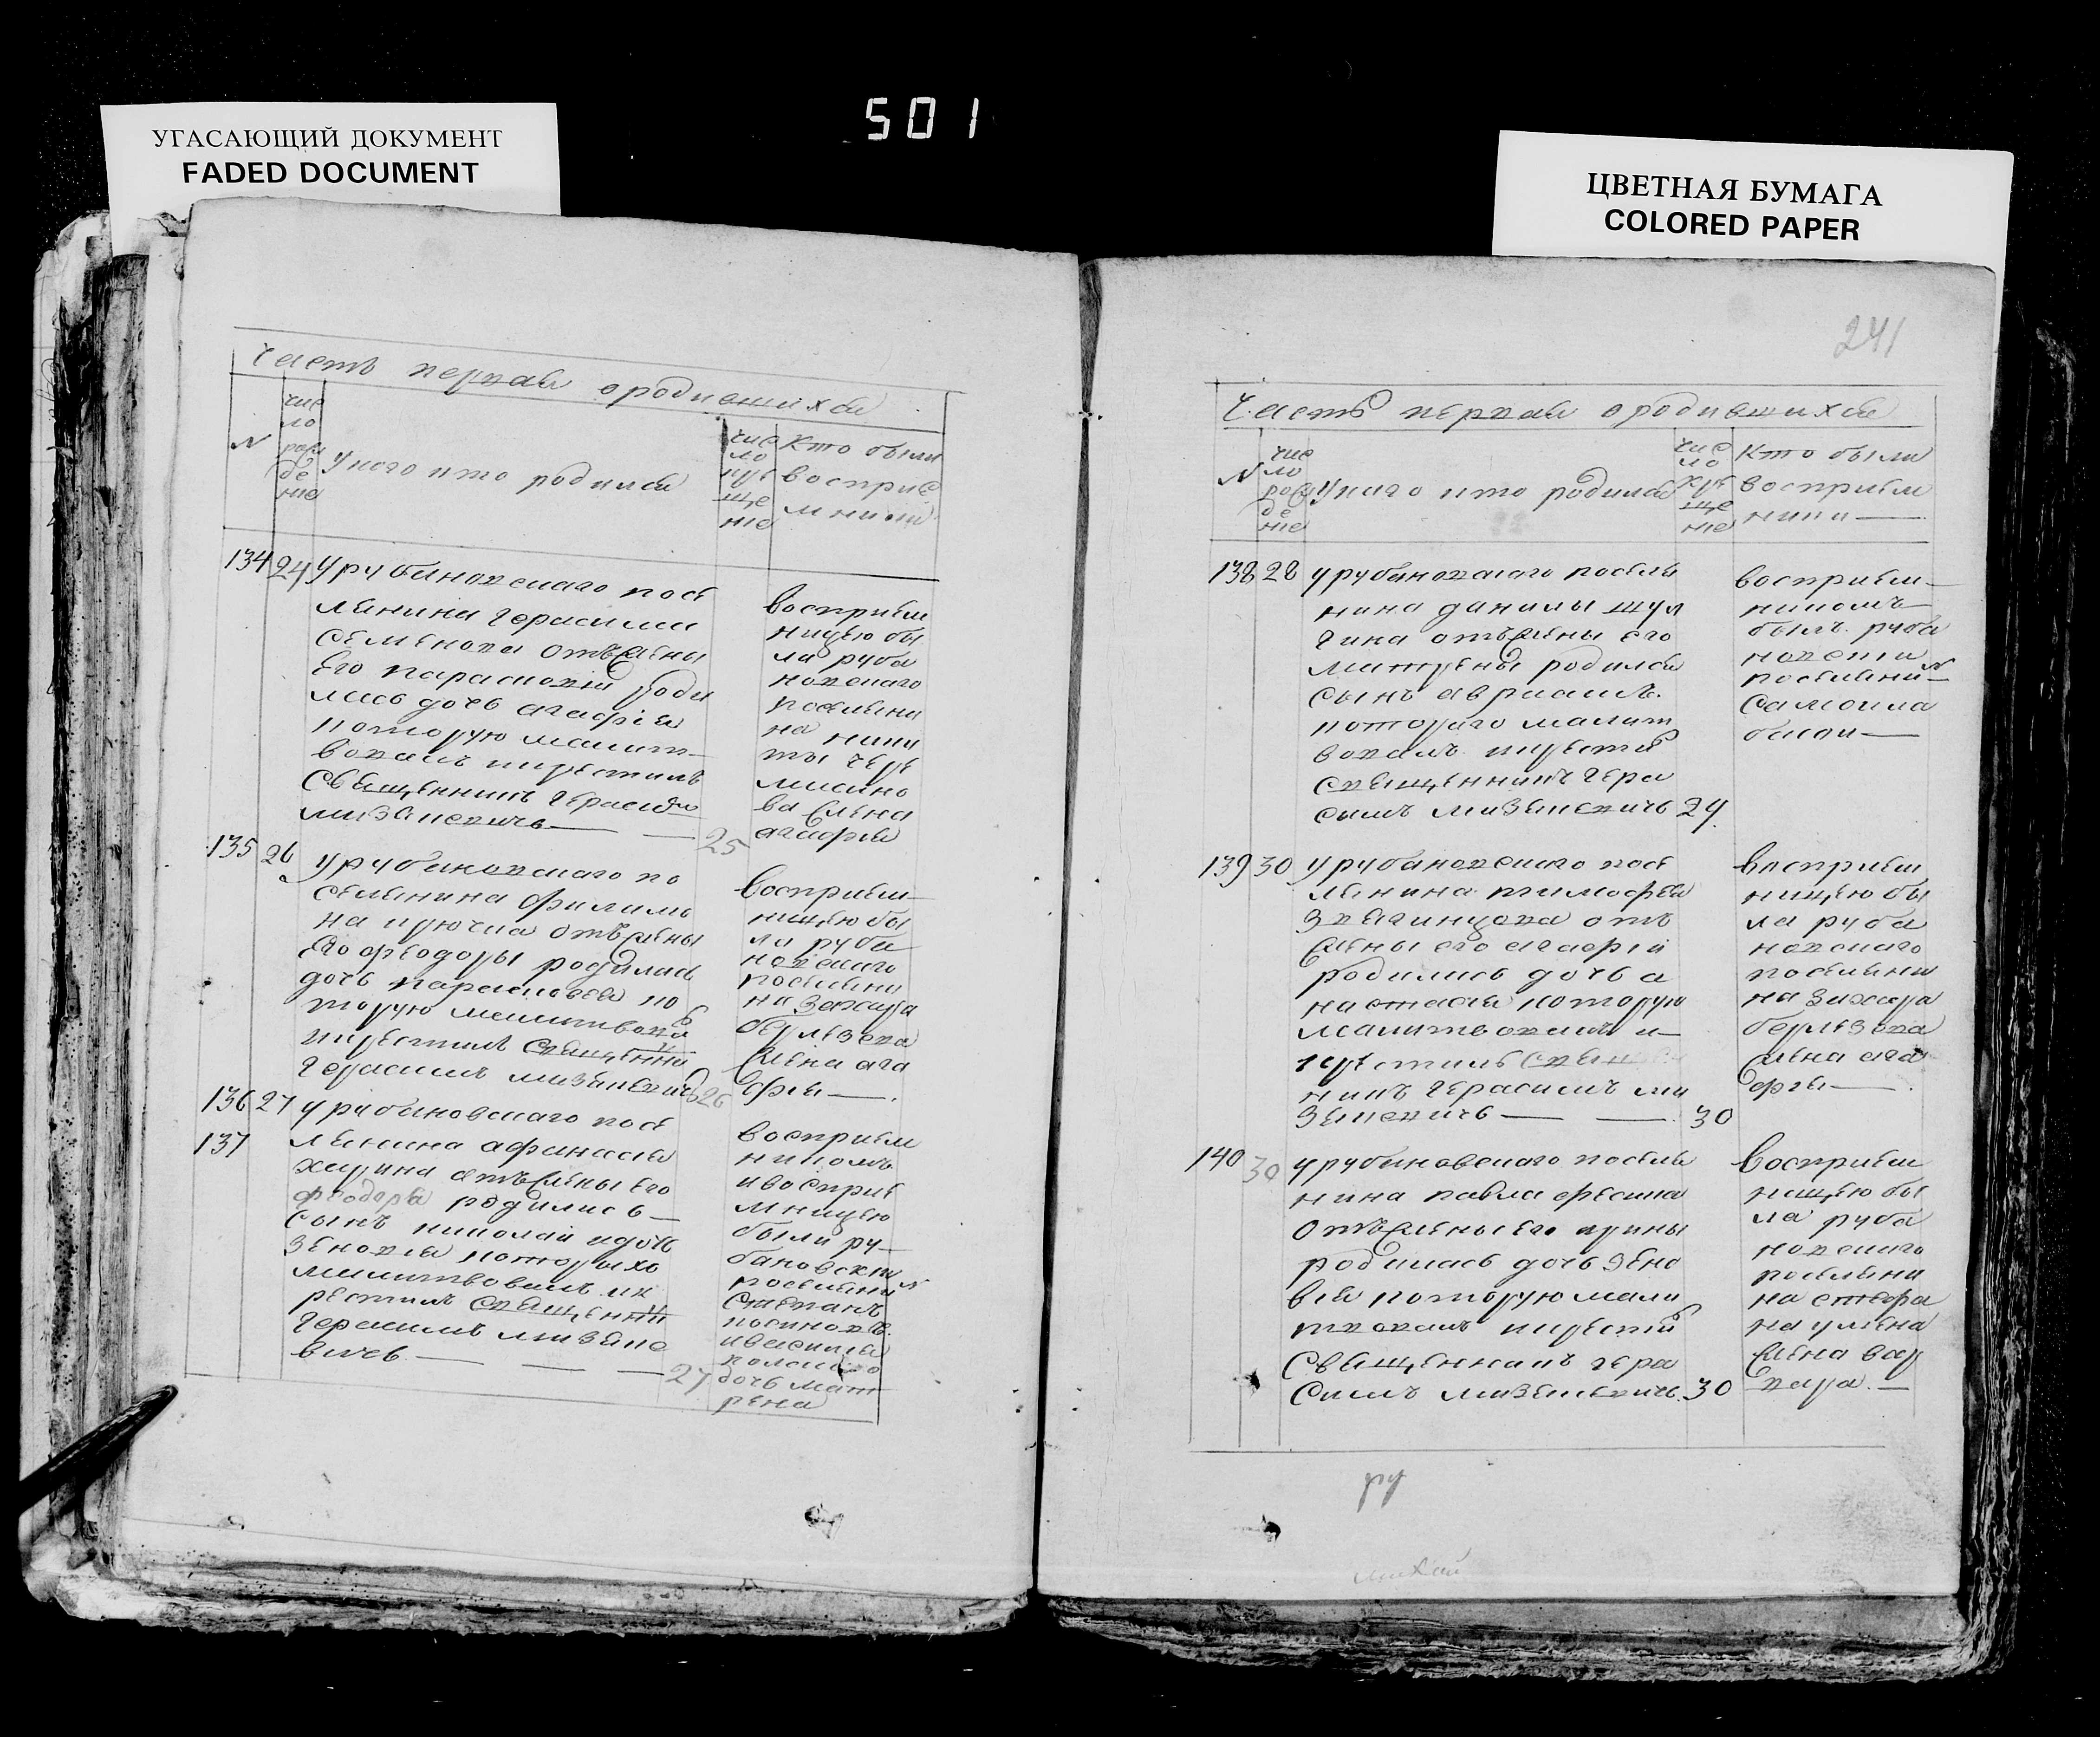 УГАСАЮЩИЙ ДОКУМЕНТ
FADED DOCUMENT
501
ЦВЕТНАЯ БУМАГА
COLORED PAPER
часть первая о родившихся
N
чис
ло
рож
де
ние
У кого кто родился
чис
ло
кре
ще
ние
Кто были
восприе
мники
134 24 у рубановскаго посе
лянина Герасима
Семенова отъ жены
Его парасковіи роди
лась дочь агафія
которую малит
вовалъ и крестилъ
Священникъ Герасим
25
восприем
ницею бы
ла руба
новскаго
поселяни
на ники
ты
жена
агафия
135 26 у рубановскаго по
селянина филимо
на отъ жены
его феодоры родилась
дочь парасковея ко
торую малитвовал
и крестилъ Священни
Герасимъ
26
восприем
ницею бы
ла руба
новскаго
поселяни
на захара
жена ага
фия
136 27 у рубановскаго посе
137
лянина афанасия
отъ жены Его
феодоры родились
сынъ николай и дочь
Зеновия которыхъ
малитвовалъ и к
рестилъ Священни
Герасимъ
27
восприем
никомъ
и восприе
мницею
были ру
бановски
поселянин
Степанъ
дочь мат
рена
241
Часть первая о родившихся
N
чис
ло
рож
де
ние
У каго кто родился
чис
ло
кре
ще
ние
Кто были
восприем
ники
138 28 у рубановскаго поселя
нина данилы шул
гина отъ жены его
матрены родился
сынъ авраамъ
котораго малит
вовалъ и крестил
священникъ Гера
симъ
29
восприем
никомъ
былъ руба
новски
поселянин
Самоила
139 30 у рубановскаго посе
лянина тимофея
Звягинцова отъ
жены его агафіи
родилась дочь а
настасия которую
малитвовалъ и
крестилъ свящ
никъ Герасимъ
30
восприем
ницею бы
ла руба
новскаго
поселяни
на захара
жена ага
фия
140 30 у рубановскаго поселя
нина павла
отъ жены Его ирины
родилась дочь Зено
вия которую мали
твовалъ и крестил
Священникъ Гера
симъ
30
восприем
ницею бы
ла руба
новскаго
поселяни
жена вар
вара
ру